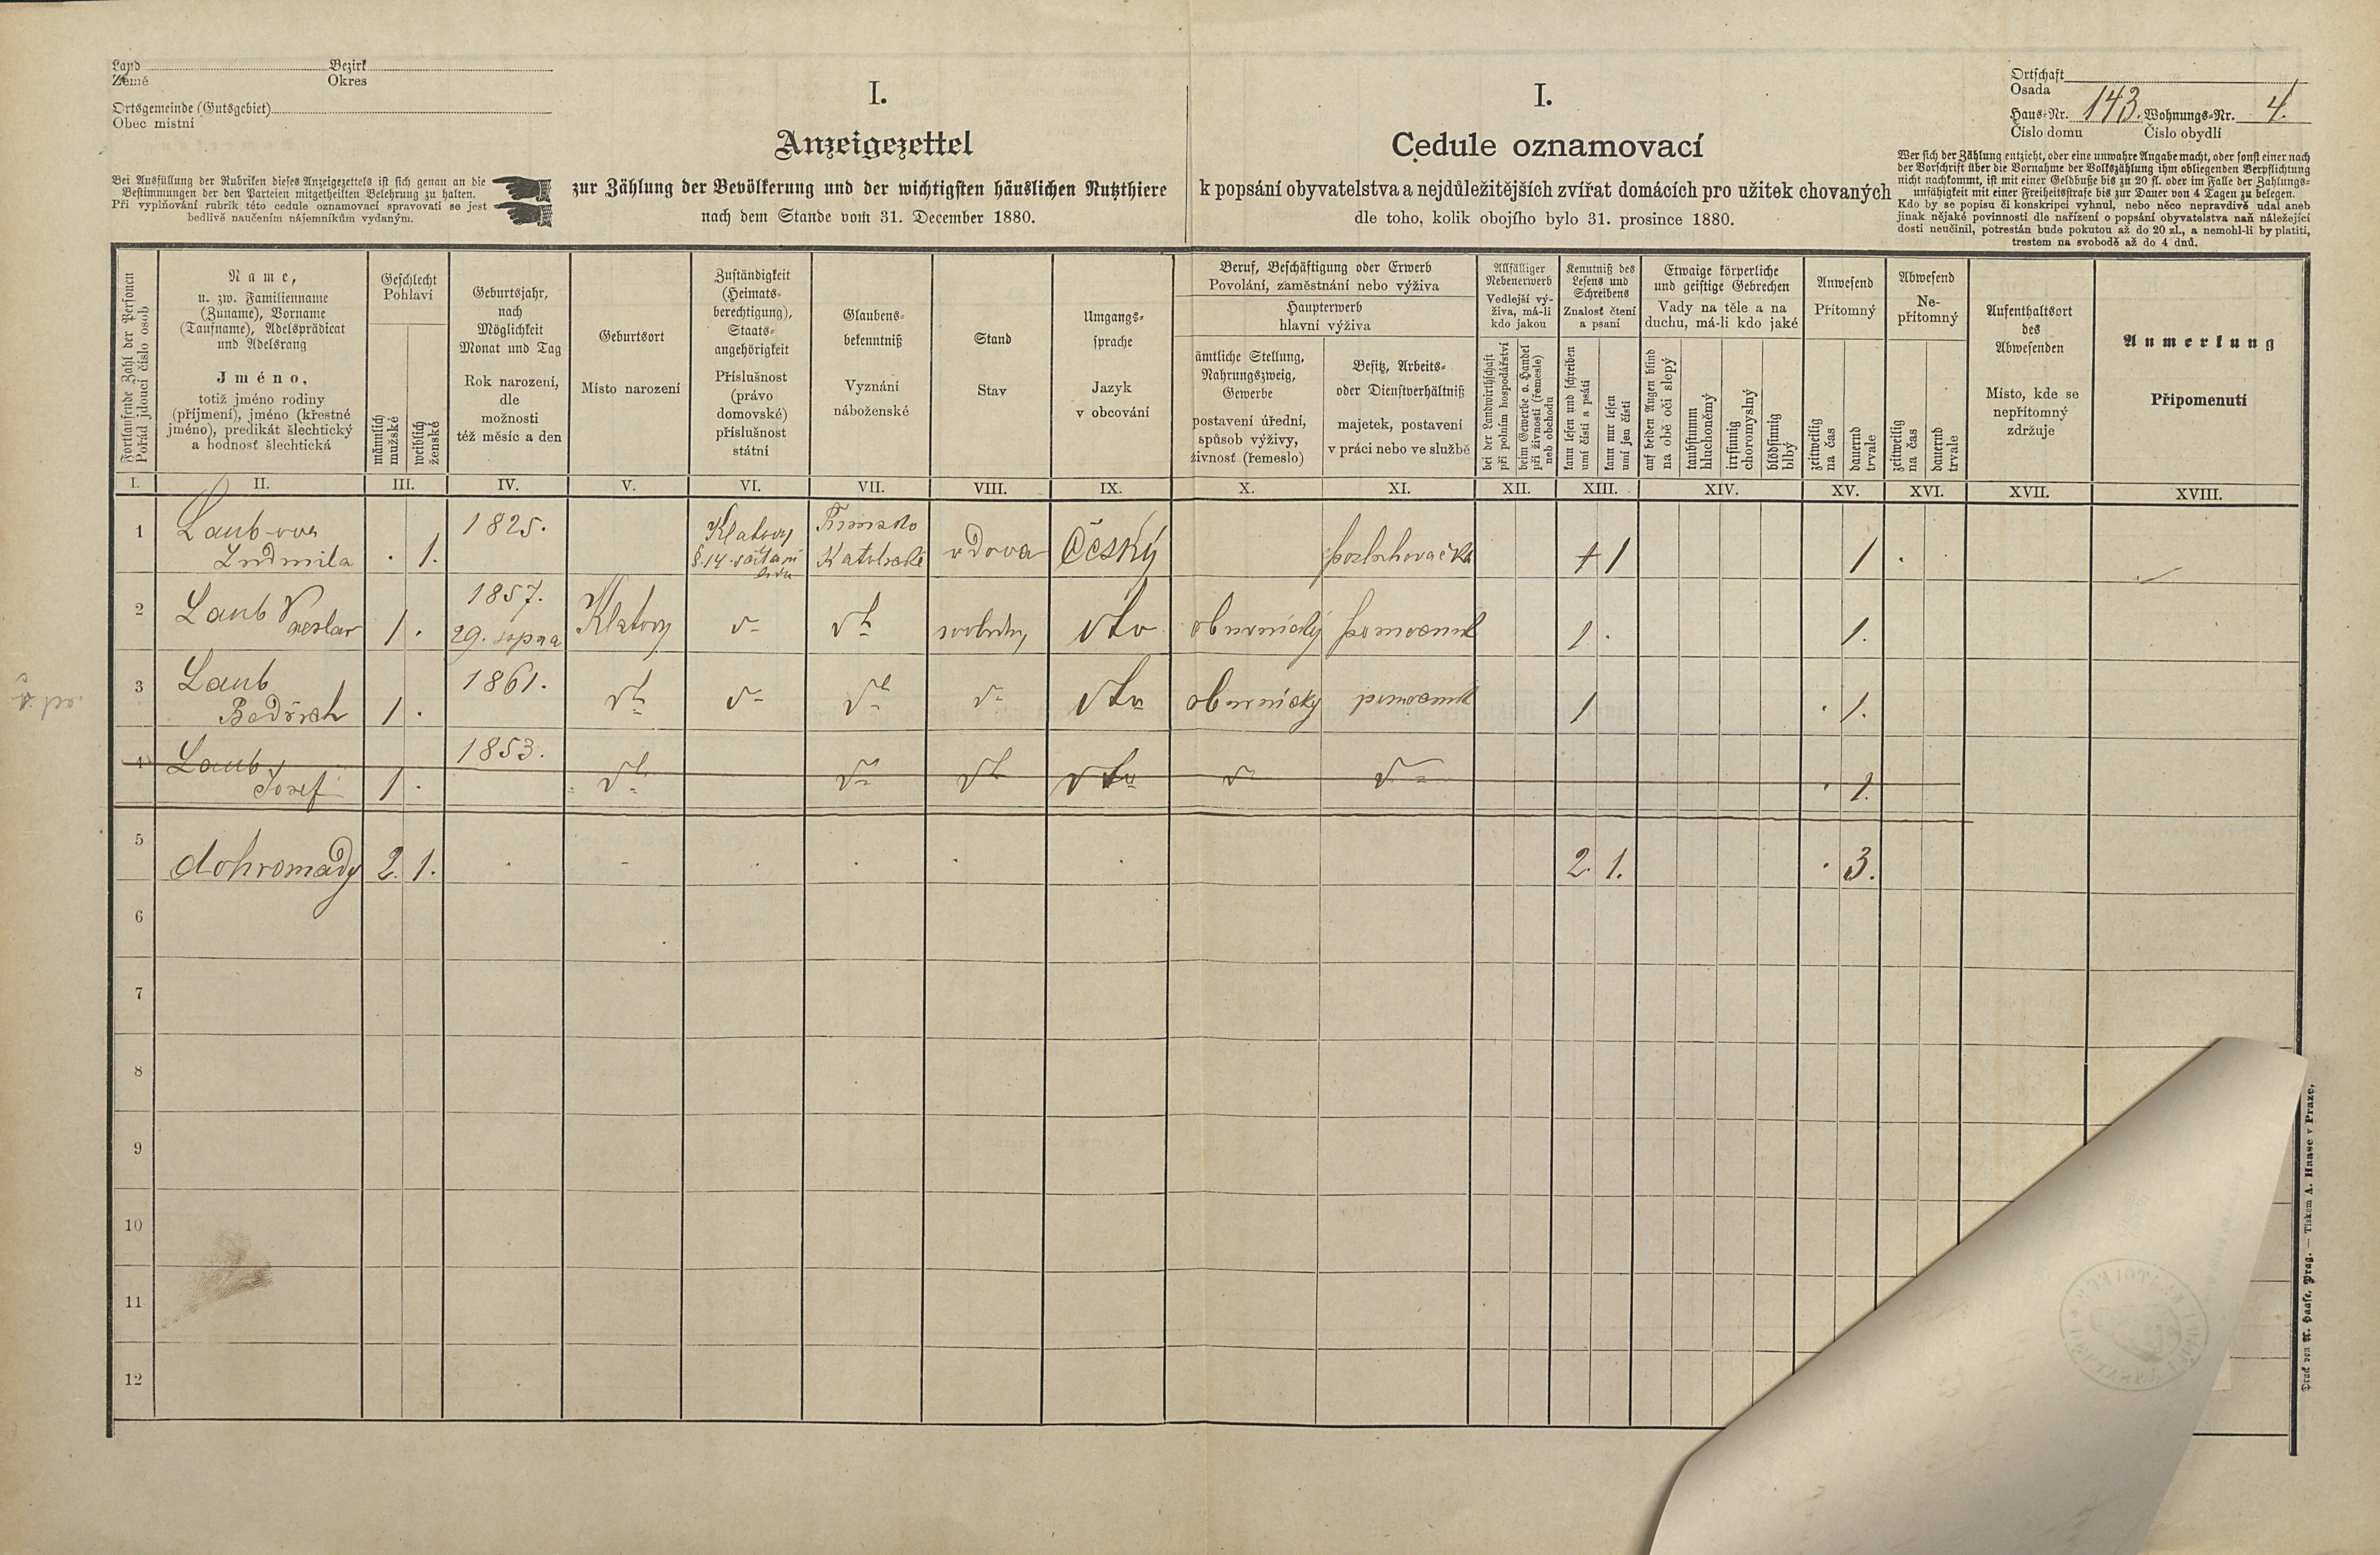 Land Bezirk
Země Okres
Ortsgemeinde (Gutsgebiet)
Obec místní
Bei Ausfüllung der Rubriken dieses Anzeigezettels ist sich genau an die
Bestimmungen der den Parteien mitgetheilten Belehrung zu halten.
Při vyplňování rubrik této cedule oznamovací spravovati se jest
bedlivě naučením nájemníkům vydaným.
I.
Anzeigezettel
zur Zählung der Bevölkerung und der wichtigsten häuslichen Nutzthiere
nach dem Stande vom 31. December 1880.
I.
Cedule oznamovací
k popsání obyvatelstva a nejdůležitějších zvířat domácích pro užitek chovaných
dle toho, kolik obojího bylo 31. prosince 1880.
Ortschaft
Osada
Haus-Nr. 143. Wohnungs-Nr. 4.
Číslo domu Číslo obydlí
Wer sich der Zählung entzieht, oder eine unwahre Angabe macht, oder sonst einer nach
der Vorschrift über die Vornahme der Volkszählung ihm obliegenden Verpflichtung
nicht nachkommt, ist mit einer Geldbuße bis zu 20 fl. oder im Falle der Zahlungs-
unfähigkeit mit einer Freiheitsstrafe bis zur Dauer von 4 Tagen zu belegen.
Kdo by se popisu či konskripci vyhnul, nebo něco nepravdivě udal aneb
jinak nějaké povinnosti dle nařízení o popsání obyvatelstva naň náležející
dosti neučinil, potrestán bude pokutou až do 20 zl., a nemohl-li by platiti,
trestem na svobodě až do 4 dnů.
Fortlaufende Zahl der Personen
Pořád jdoucí číslo osob
Name,
u. zw. Familienname
(Zuname), Vorname
(Taufname), Adelsprädicat
und Adelsrang
Jméno,
totiž jméno rodiny
(příjmení), jméno (křestné
jméno), predikát šlechtický
a hodnosť šlechtická
Geschlecht
Pohlaví
männlich
mužské
weiblich
ženské
Geburtsjahr,
nach
Möglichkeit
Monat und Tag
Rok narození,
dle
možnosti
též měsíc a den
Geburtsort
Místo narození
Zuständigkeit
(Heimats-
berechtigung),
Staats-
angehörigkeit
Příslušnost
(právo
domovské)
příslušnost
státní
Glaubens-
bekenntniß
Vyznání
náboženské
Stand
Stav
Umgangs-
sprache
Jazyk
v obcování
Beruf, Beschäftigung oder Erwerb
Povolání, zaměstnání nebo výživa
Haupterwerb
hlavní výživa
ämtliche Stellung,
Nahrungszweig,
Gewerbe
postavení úřední,
spůsob výživy,
živnosť (řemeslo)
Besitz, Arbeits-
oder Dienstverhältniß
majetek, postavení
v práci nebo ve službě
Allfälliger
Nebenerwerb
Vedlejší vý-
živa, má-li
kdo jakou
bei der Landwirthschaft
při polním hospodářství
beim Gewerbe o. Handel
při živnosti (řemesle)
neb obchodu
Kenntniß des
Lesens und
Schreibens
Znalosť čtení
a psaní
kann lesen und schreiben
umí čísti a psáti
kann nur lesen
umí jen čísti
Etwaige körperliche
und geistige Gebrechen
Vady na těle a na
duchu, má-li kdo jaké
auf beiden Augen blind
na obě oči slepý
taubstumm
hluchoněmý
irrsinnig
choromyslný
blödsinnig
blbý
Anwesend
Přítomný
zeitweilig
na čas
dauernd
trvale
Abwesend
Ne-
přítomný
zeitweilig
na čas
dauernd
trvale
Aufenthaltsort
des
Abwesenden
Místo, kde se
nepřítomný
zdržuje
Anmerkung
Připomenutí
I. II. III. IV. V. VI. VII. VIII. IX. X. XI. XII. XIII. XIV. XV. XVI. XVII. XVIII.
1 Laub-ova 1825. Klatovy
Ludmila . 1. Katolické vdova Český 1 1
2 Laub 1857.
1. 29. srpna Klatovy obuvnický 1. 1.
3 Laub 1861.
Bedřich 1. obuvnický 1 1.
4 Laub 1853.
Josef 1. 1.
5
dohromady 2. 1. 2. 1. 3.
6
7
8
9
10
11
12
Druck von A. Haase, Prag. — Tiskem A. Haase v Praze.